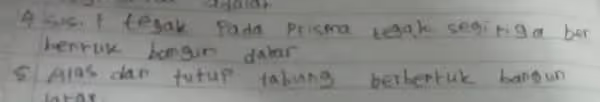 adalah
4 sisi tegak pada prisma tegak segitiga ber
bentuk bangun datar
5 Alas dan tutup tabung berbentuk bangun